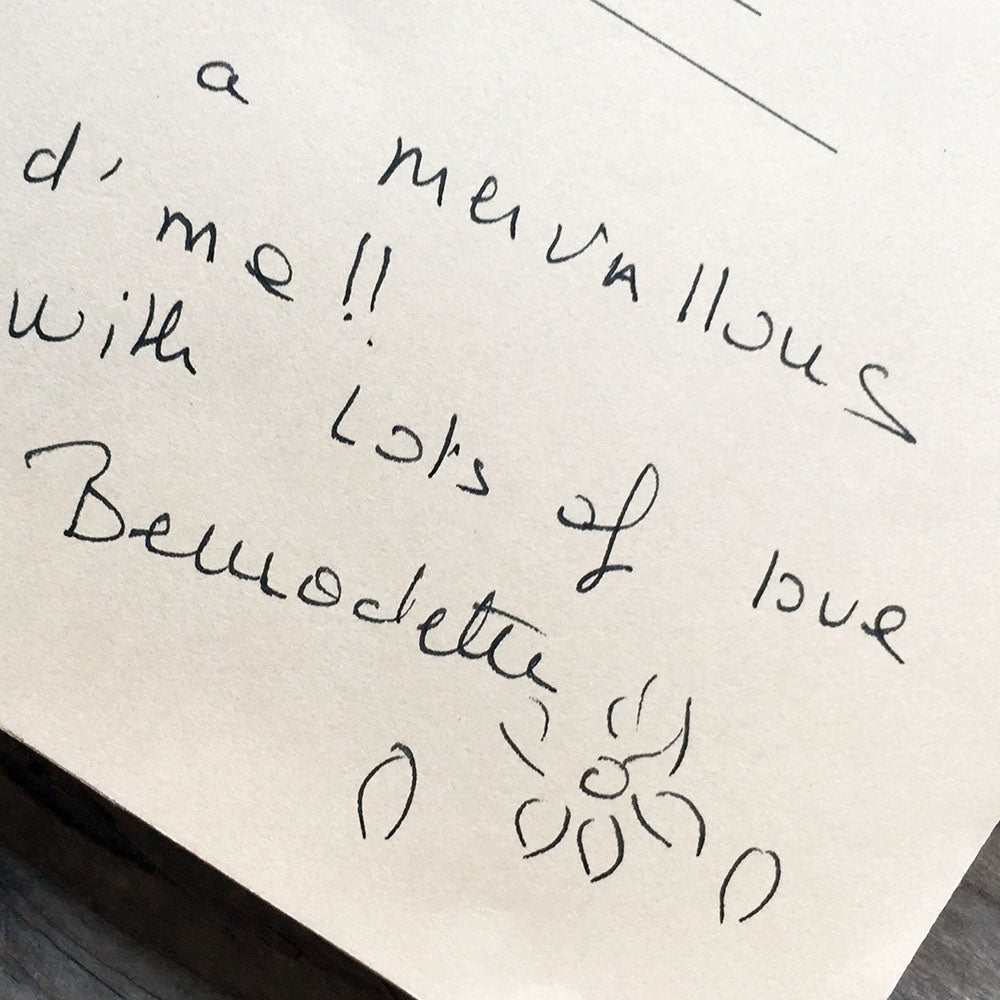 a mervallous
d, me!!
with lots of love
Bernadette